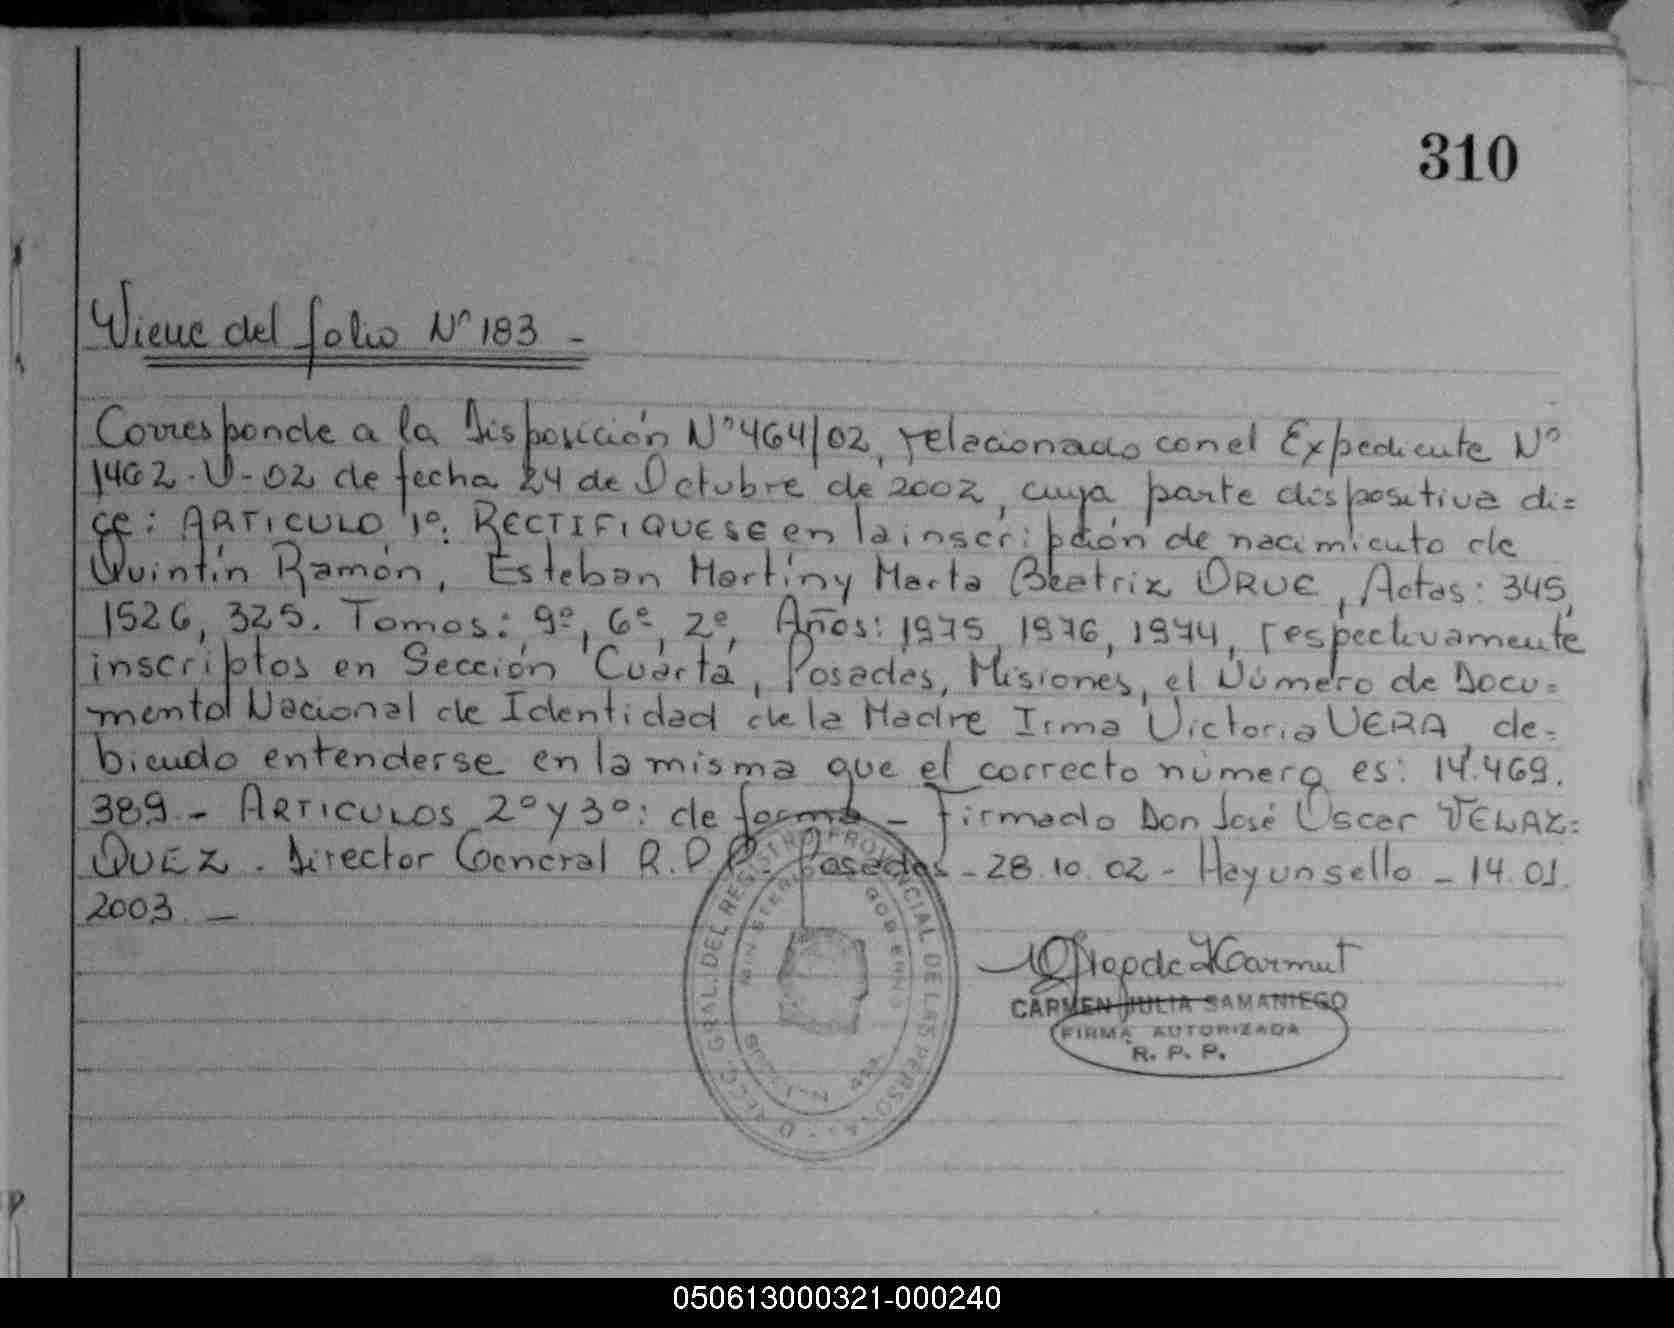 310
Viene del folio Nº 183 -
Corresponde a la Disposición Nº 464/02, relacionado con el Expediente Nº
1462-V-02 de fecha 24 de Octubre de 2002, cuya parte dispositiva di=
ce: ARTICULO 1º: RECTIFIQUESE en la inscripción de nacimiento de
Quintín Ramón, Esteban Martín y Marta Beatriz ORUE, Actas: 345,
1526, 325. Tomos: 9º, 6º, 2º, Años: 1975, 1976, 1974, respectivamente
inscriptos en Sección Cuarta, Posadas, Misiones, el Número de Docu=
mento Nacional de Identidad de la Madre Irma Victoria VERA, de=
biendo entenderse en la misma que el correcto número es: 14.469.
389.- ARTICULOS 2º y 3º: de forma - Firmado Don José Oscar VELAZ=
QUEZ. Director General R.P.P. Posadas - 28.10.02 - Hay un sello - 14.01.
2003. -
DIRECC. GRAL. DEL REGISTRO PROVINCIAL DE LAS PERSONAS
MINISTERIO GOBIERNO
MISIONES
CARMEN JULIA SAMANIEGO
FIRMA AUTORIZADA
R. P. P.
050613000321-000240